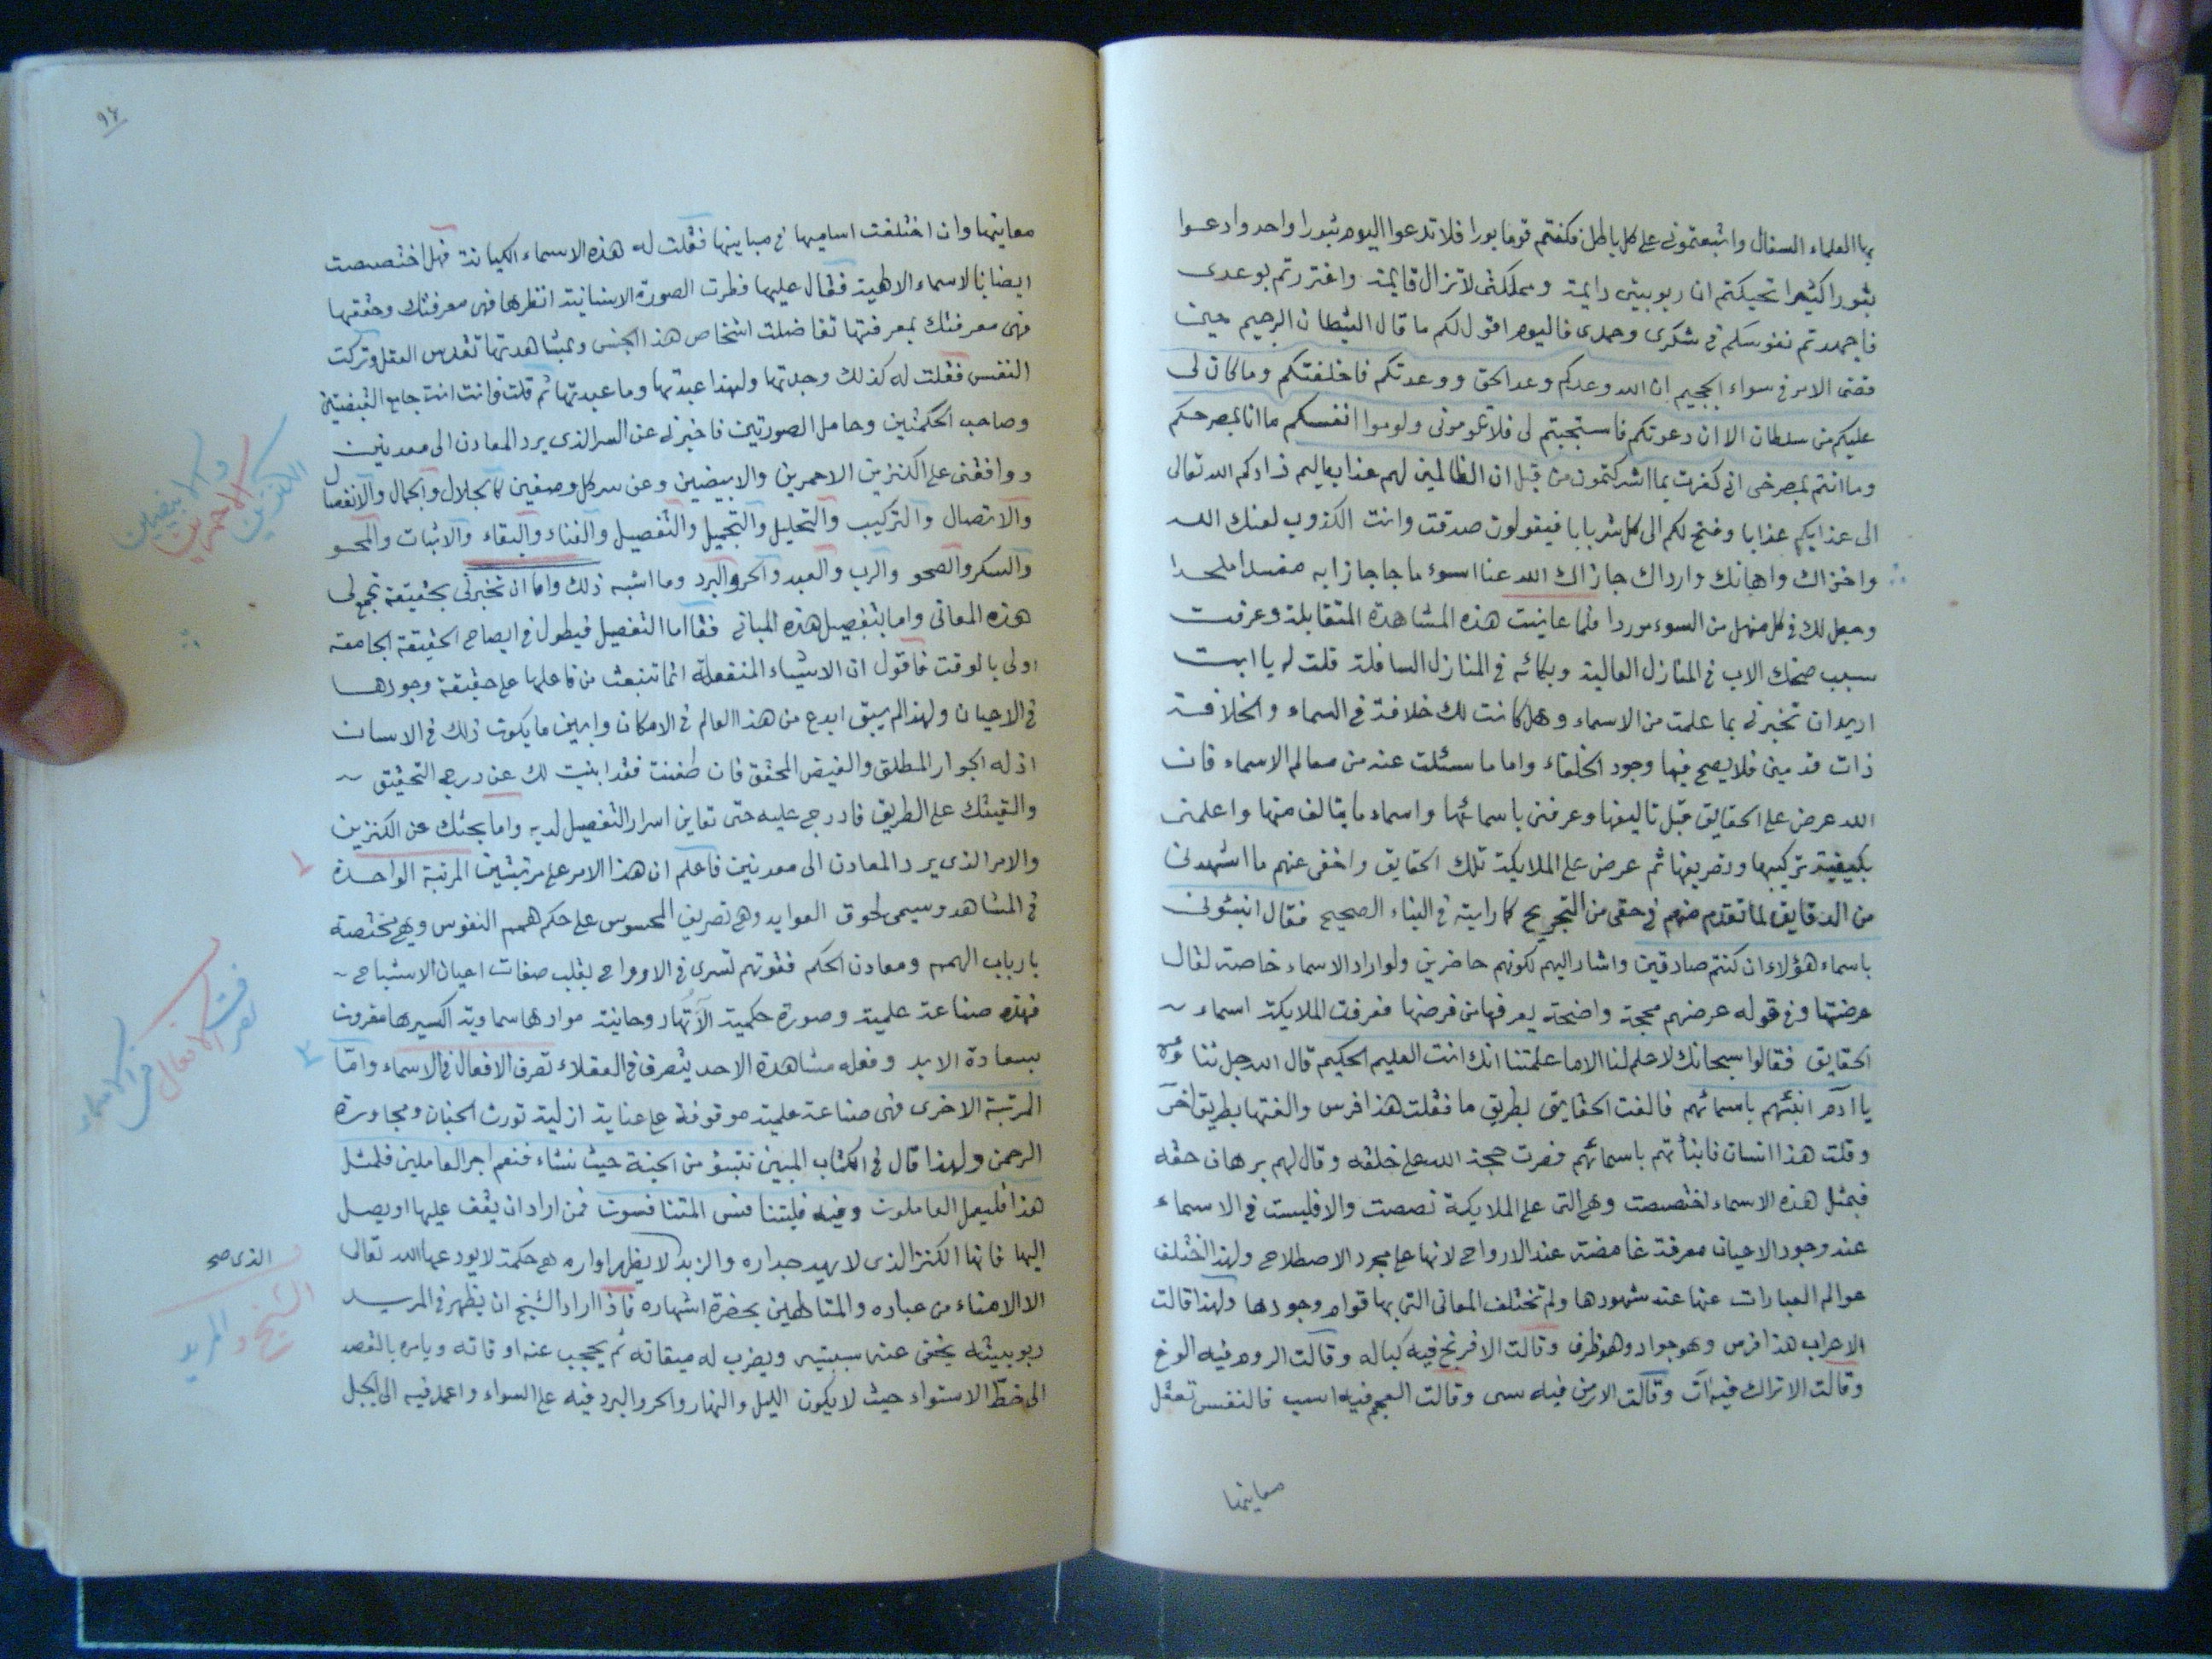 بها العلماء السفال واتبعتمونى على كل باطل فكنتم قوما بورا فلا تدعوا اليوم ثبورا واحد وادعوا
ثبورا كثيرا تحيكتم ان ربوبيتى دايمة ومملكتى لا تزال قايمة واغتررتم بوعدى
فاجهدتم نفوسكم فى شكرى وحمدى فاليوم اقول لكم ما قال الشيطان الرجيم حين
قضى الامر فى سواء الجحيم ان الله وعدكم وعد الحق ووعدتكم فاخلفتكم وما كان لى
عليكم من سلطان الا ان دعوتكم فاستجبتم لى فلا تلومونى ولوموا انفسكم ما انا بمصرخكم
وما انتم بمصرخى انى كفرت بما اشركتمون من قبل ان الظالمين لهم عذاب اليم زادكم الله تعالى
الى عذابكم عذابا وفتح لكم الى كل شر بابا فيقولون صدقت وانت الكذوب لعنك الله
واخزاك واهانك وارداك جازاك الله عنا اسوء ما جازا به مفسدا ملحدا
وجعل لك فى كل منهل من السوء موردا فلما عاينت هذه المشاهدة المتقابلة وعرفت
سبب ضحك الاب فى المنازل العالية وبكائه فى المنازل السافلة قلت له يا ابت
اريد ان تخبرنى بما علمت من الاسماء وهل كانت لك خلافة فى السماء والخلافة
ذات قدمين فلا يصح فيها وجود الخلفاء واما ما سئلت عنه من معالم الاسماء فان
الله عرض على الحقايق قبل تاليفها وعرفنى باسمائها واسماء ما يتالف منها واعلمنى
بكيفية تركيبها وتصريفها ثم عرض على الملايكة تلك الحقايق واخفى عنهم ما اشهدنى
من الدقايق لما تقدم منهم فى حقى من التجريح كما رايته فى البناء الصحيح فقال انبئونى
باسماء هؤلاء ان كنتم صادقين واشار اليهم لكونهم حاضرين ولو اراد الاسماء خاصة لقال
عرضتها وفى قوله عرضهم محجة واضحة يعرفها من فرضها فعرفت الملايكة اسماء
الحقايق فقالوا سبحانك لا علم لنا الا ما علمتنا انك انت العليم الحكيم قال الله جل ثناؤه
يا آدم انبئهم باسمائهم فالفت الحقايق بطريق ما فقلت هذا فرس والفتها بطريق آخر
وقلت هذا انسان فانبأتهم باسمائهم فصرت حجة الله على خلقه وقال لهم برهان حقه
فبمثل هذه الاسماء اختصصت وهى التى على الملايكة نصصت والا فليست فى الاسماء
عند وجود الاعيان معرفة غامضة عند الارواح لانها على مجرد الاصطلاح ولهذا اختلف
عوالم العبارات عنها عند شهودها ولم تختلف المعانى التى بها قوام وجودها ولهذا قالت
الاعراب هذا فرس وهو جواد وهو طرف وقالت الافرنج فيه كباله وقالت الروم فيه الوغ
وقالت الاتراك فيه ات وقالت الارمن فيه سى وقالت العجم فيه اسب فالنفس تعقل
معاينها
٩٤
معاينها وان اختلفت اساميها فى مباينها فقلت له هذه الاسماء الكيانة فهل اختصصت
ايضا بالاسماء الالهية فقال عليها فطرت الصورة الانسانية انظرها فهى معرفتك وحققها
فهى معرفتك بمعرفتها تفاضلت اشخاص هذا الجنس وبمشاهدتها تقدس العقل وتركت
النفس فقلت له كذلك وجدتها ولهذا عبدتها وما عبدتها ثم قلت فانت انت جامع القبضتين
وصاحب الحكمتين وحامل الصورتين فاخبرنى عن السر الذى يرد المعادن الى معدنين
ووافقنى على الكنزين الاحمرين والابيضين وعن سر كل وصفين كالجلال والجمال والانفصال
والاتصال والتركيب والتحليل والتجميل والتفصيل والفناء والبقاء والاثبات والمحو
والسكر والصحو والرب والعبد والحر والبرد وما اشبه ذلك واما ان تخبرنى بحقيقة تجمع لى
هذه المعانى واما بتفصيل هذه المبانى فقا اما التفصيل فيطول فى ايضاح الحقيقة الجامعة
اولى بالوقت فاقول ان الاشياء المنفعلة انما تنبعث من فاعلها على حقيقة وجودها
فى الاعيان ولهذا لم يبق ابدع من هذا العالم فى الامكان وابين ما يكون ذلك فى الانسان
اذ له الجوار المطلق والفيض المحقق فان طفنت فقد ابنيت لك عن درج التحقيق
والقيتك على الطريق فادرج عليه حتى تعاين اسرار التفصيل لديه واما بحثك عن الكنزين
والامر الذى يرد المعادن الى معدنين فاعلم ان هذا الامر على مرتبتين المرتبة الواحدة
فى المشاهد وسيمى لحوق العوايد وهى تصريف المحسوس على حكم همم النفوس وهى مختصة
بارباب الهمم ومعادن الحكم فقوتهم تسرى فى الاورواح بقلب صفات اعيان الاشباح
فهذه صناعة علمية وصورة حكمية الآتها روحانية موادها سماوية اكسيرها مقرون
بسعادة الابد وفعله مشاهدة الاحد يتصرف فى العقلاء تصرف الافعال فى الاسماء وامّا
المرتبة الاخرى فهى صناعة علمية موقوفة على عناية ازلية تورث الجنان ومجاورة
الرحمن ولهذا قال فى الكتاب المبين نتبوؤ من الجنة حيث نشاء فنعم اجر العاملين فلمثل
هذا فليعمل العاملون وفيه فليتنافس المتنافسون فمن اراد ان يقف عليها او يصل
اليها فانها الكنز الذى لا يهد جداره والزبد لا يظهر اواره هى حكمة لا يودعها الله تعالى
الا الامناء من عباده والمتاطهين بحضرة اشهاده فاذا اراد الشيخ ان يظهر فى المريد
ربوبيته يخفى عنه سبتيه ويضرب له ميقاته ثم يحجب عنه اوقاته ويامره بالقصد
الى خطّ الاستواء حيث لا يكون الليل والنهار والحر والبرد فيه على السواء واعمد فيه الى الجبل
الكنوزين
الاحمرين
والابيضين
١
٢
تصرف
الافعال
فى الاسماء
الذى صح
الشيخ والمريد